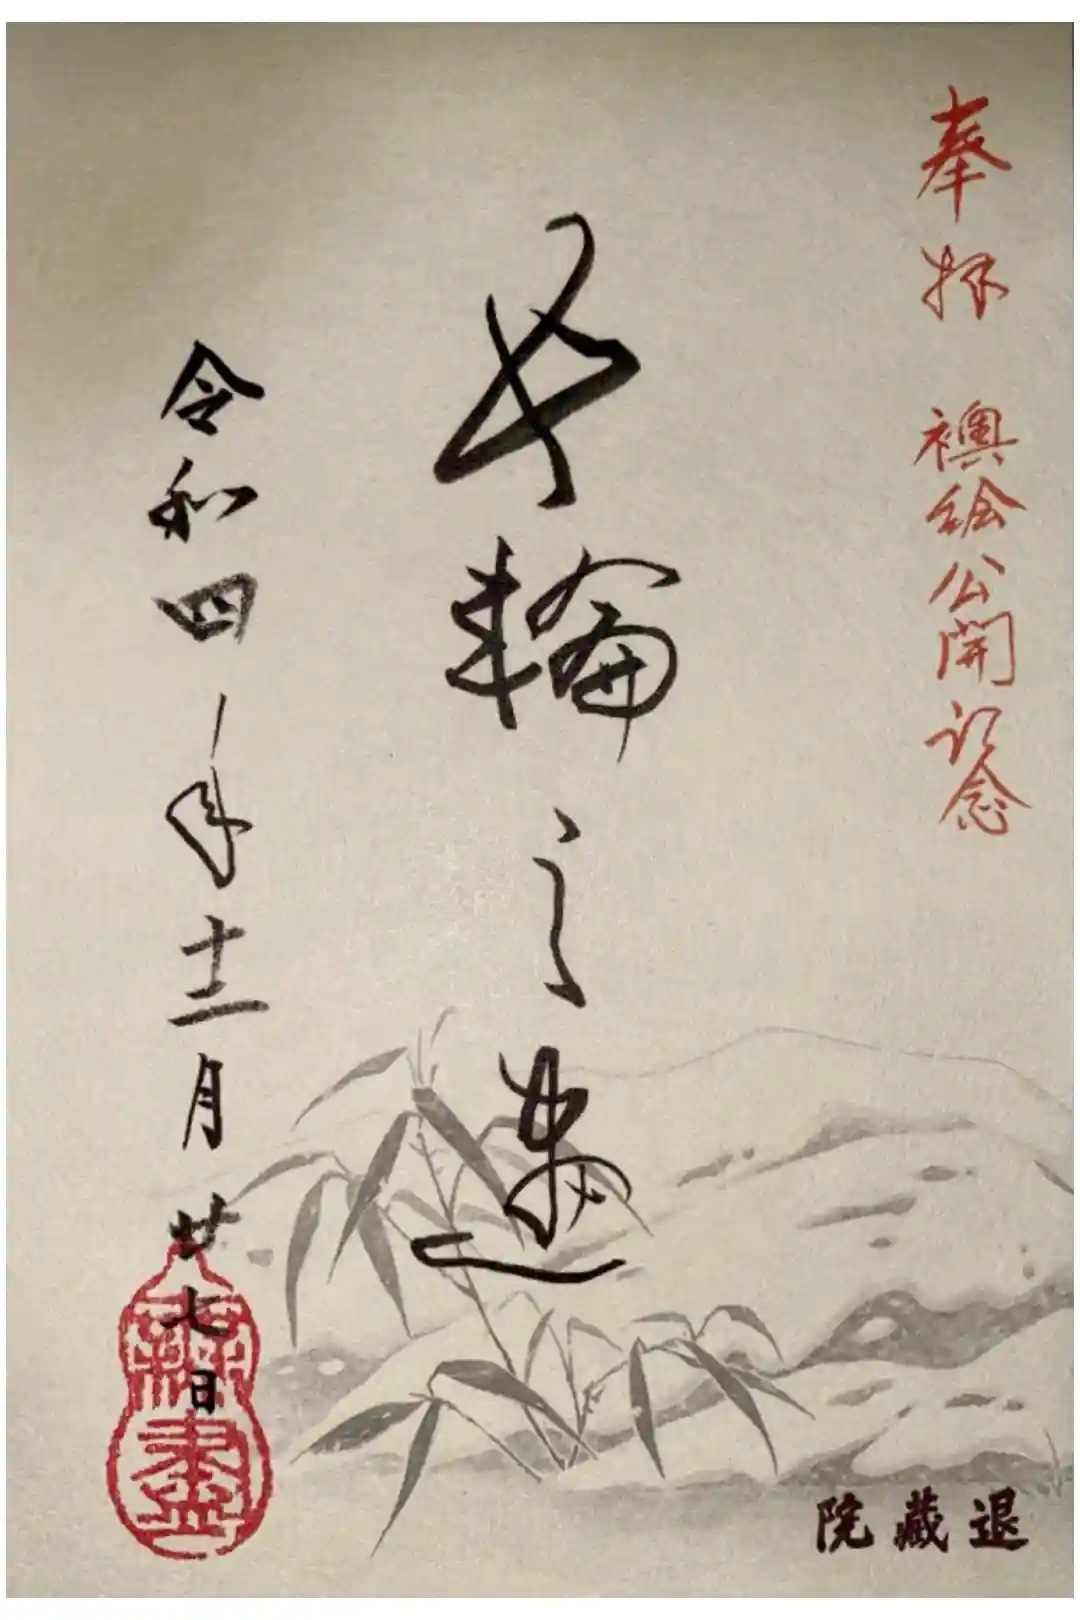 奉拝 襖絵公開記念
輪之
令和四年十二月廿七日
無盡
退藏院